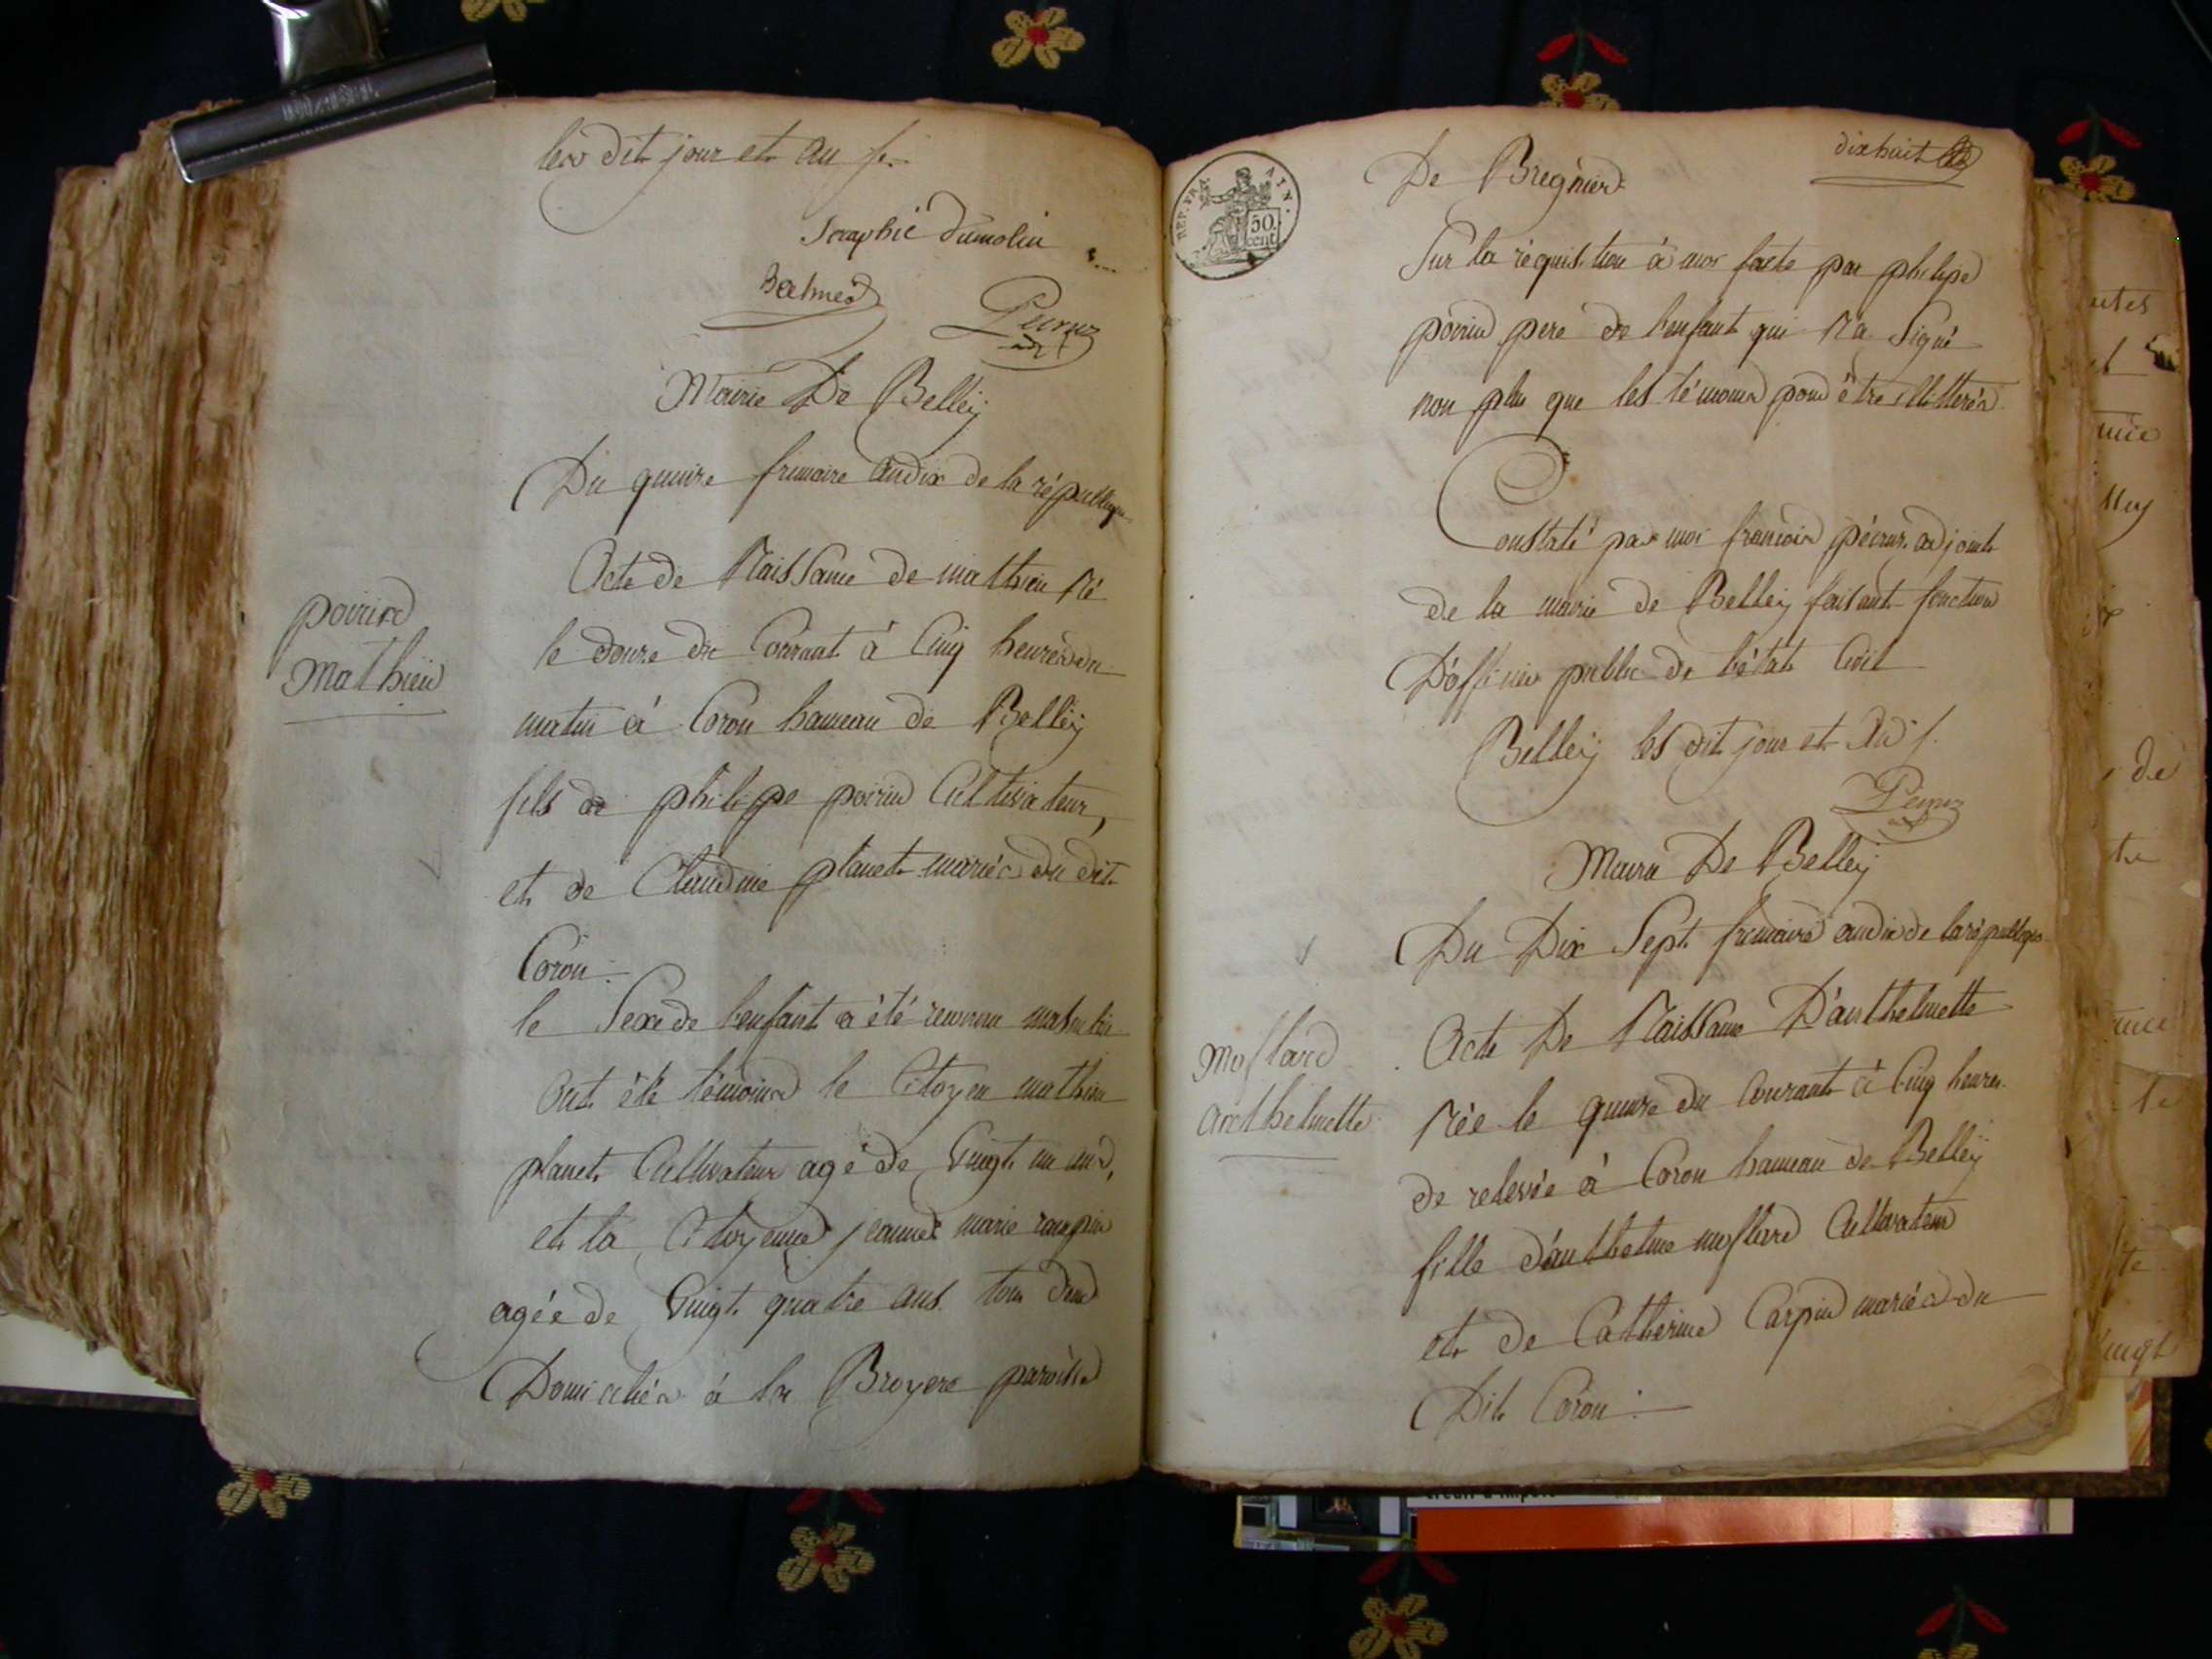 les dit jour et an f.
Seraphie Dumolin
Mairie De Belleÿ
Du quinze frimaire an dix de la république
poirin
Mathieu
Acte de Naissance de mathieu Né
le douze du Courant à Cinq heures du
matin à Coron hameau de Belleÿ
fils de philippe poirin Cultivateur,
et de Claudine planet mariés du dit
Coron.
le Sexe de l'enfant a été reconnu masculin
Ont été témoins le Citoyen mathieu
planet Cultivateur agé de Vingt un ans,
et la Citoyenne jeanne marie
agée de Vingt quatre ans tous deux
Domiciliés à la Broyere paroisse
dix huit
REP. FRA. AIN.
50 cent
De Bregnier
Sur la réquisition à moi faite par philipe
poirin pere de l'enfant qui N'a Signé
non plus que les témoins pour être illitterés.
Constaté par moi francois péiruz adjoint
de la mairie de Belleÿ faisant fonction
D'officier public de l'état Civil
Belleÿ les dit jour et an f.
Péiruz
Mairie De Belleÿ
Du Dix Sept frimaire an dix de la république
mollard
anthelmette
Acte De Naissance D'anthelmette
Née le quinze du Courant à Cinq heures
de relevée à Coron hameau de Belleÿ
fille d'anthelme mollard Cultivateur
et de Catherine Carpin mariés du
Dit Coron.